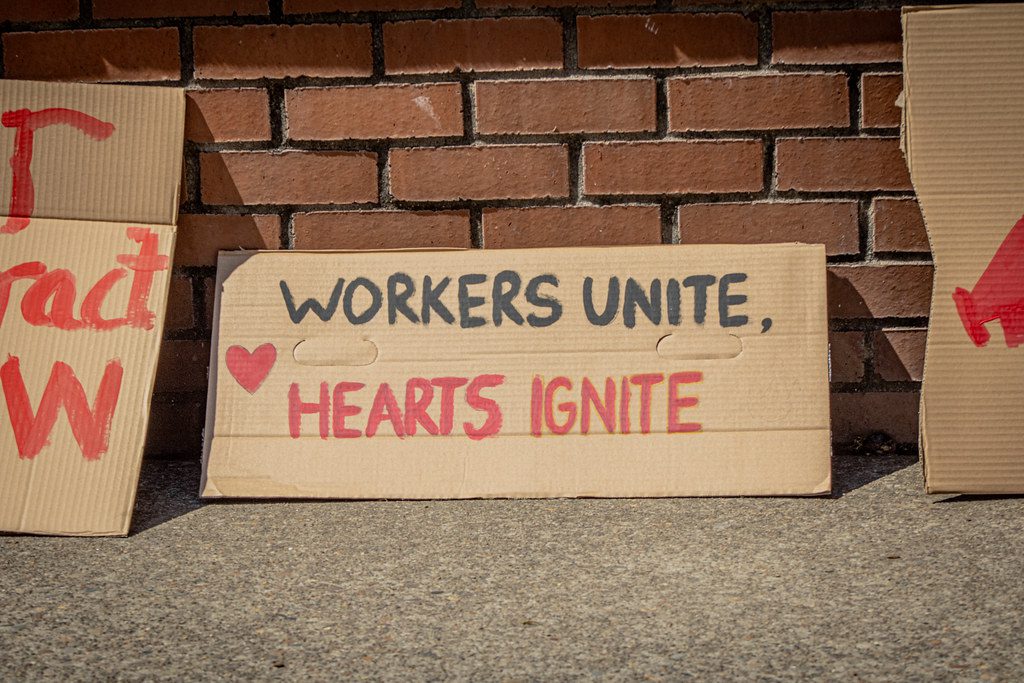 WORKERS UNITE,
HEARTS IGNITE